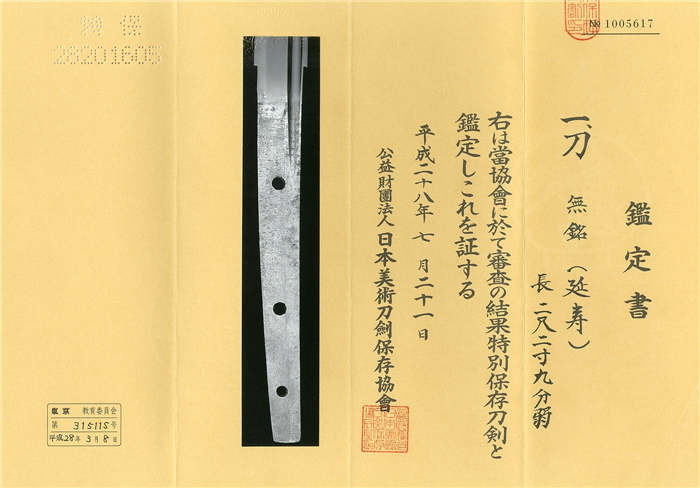 № 1005617
鑑定書
一、刀 無銘(延寿)
長二尺二寸九分弱
右は當協會に於て審査の結果特別保存刀剣と
鑑定しこれを証する
平成二十八年七月二十一日
公益財團法人日本美術刀劍保存協會
特保
28201605
東京 教育委員会
第 315115号
平成28年3月8日